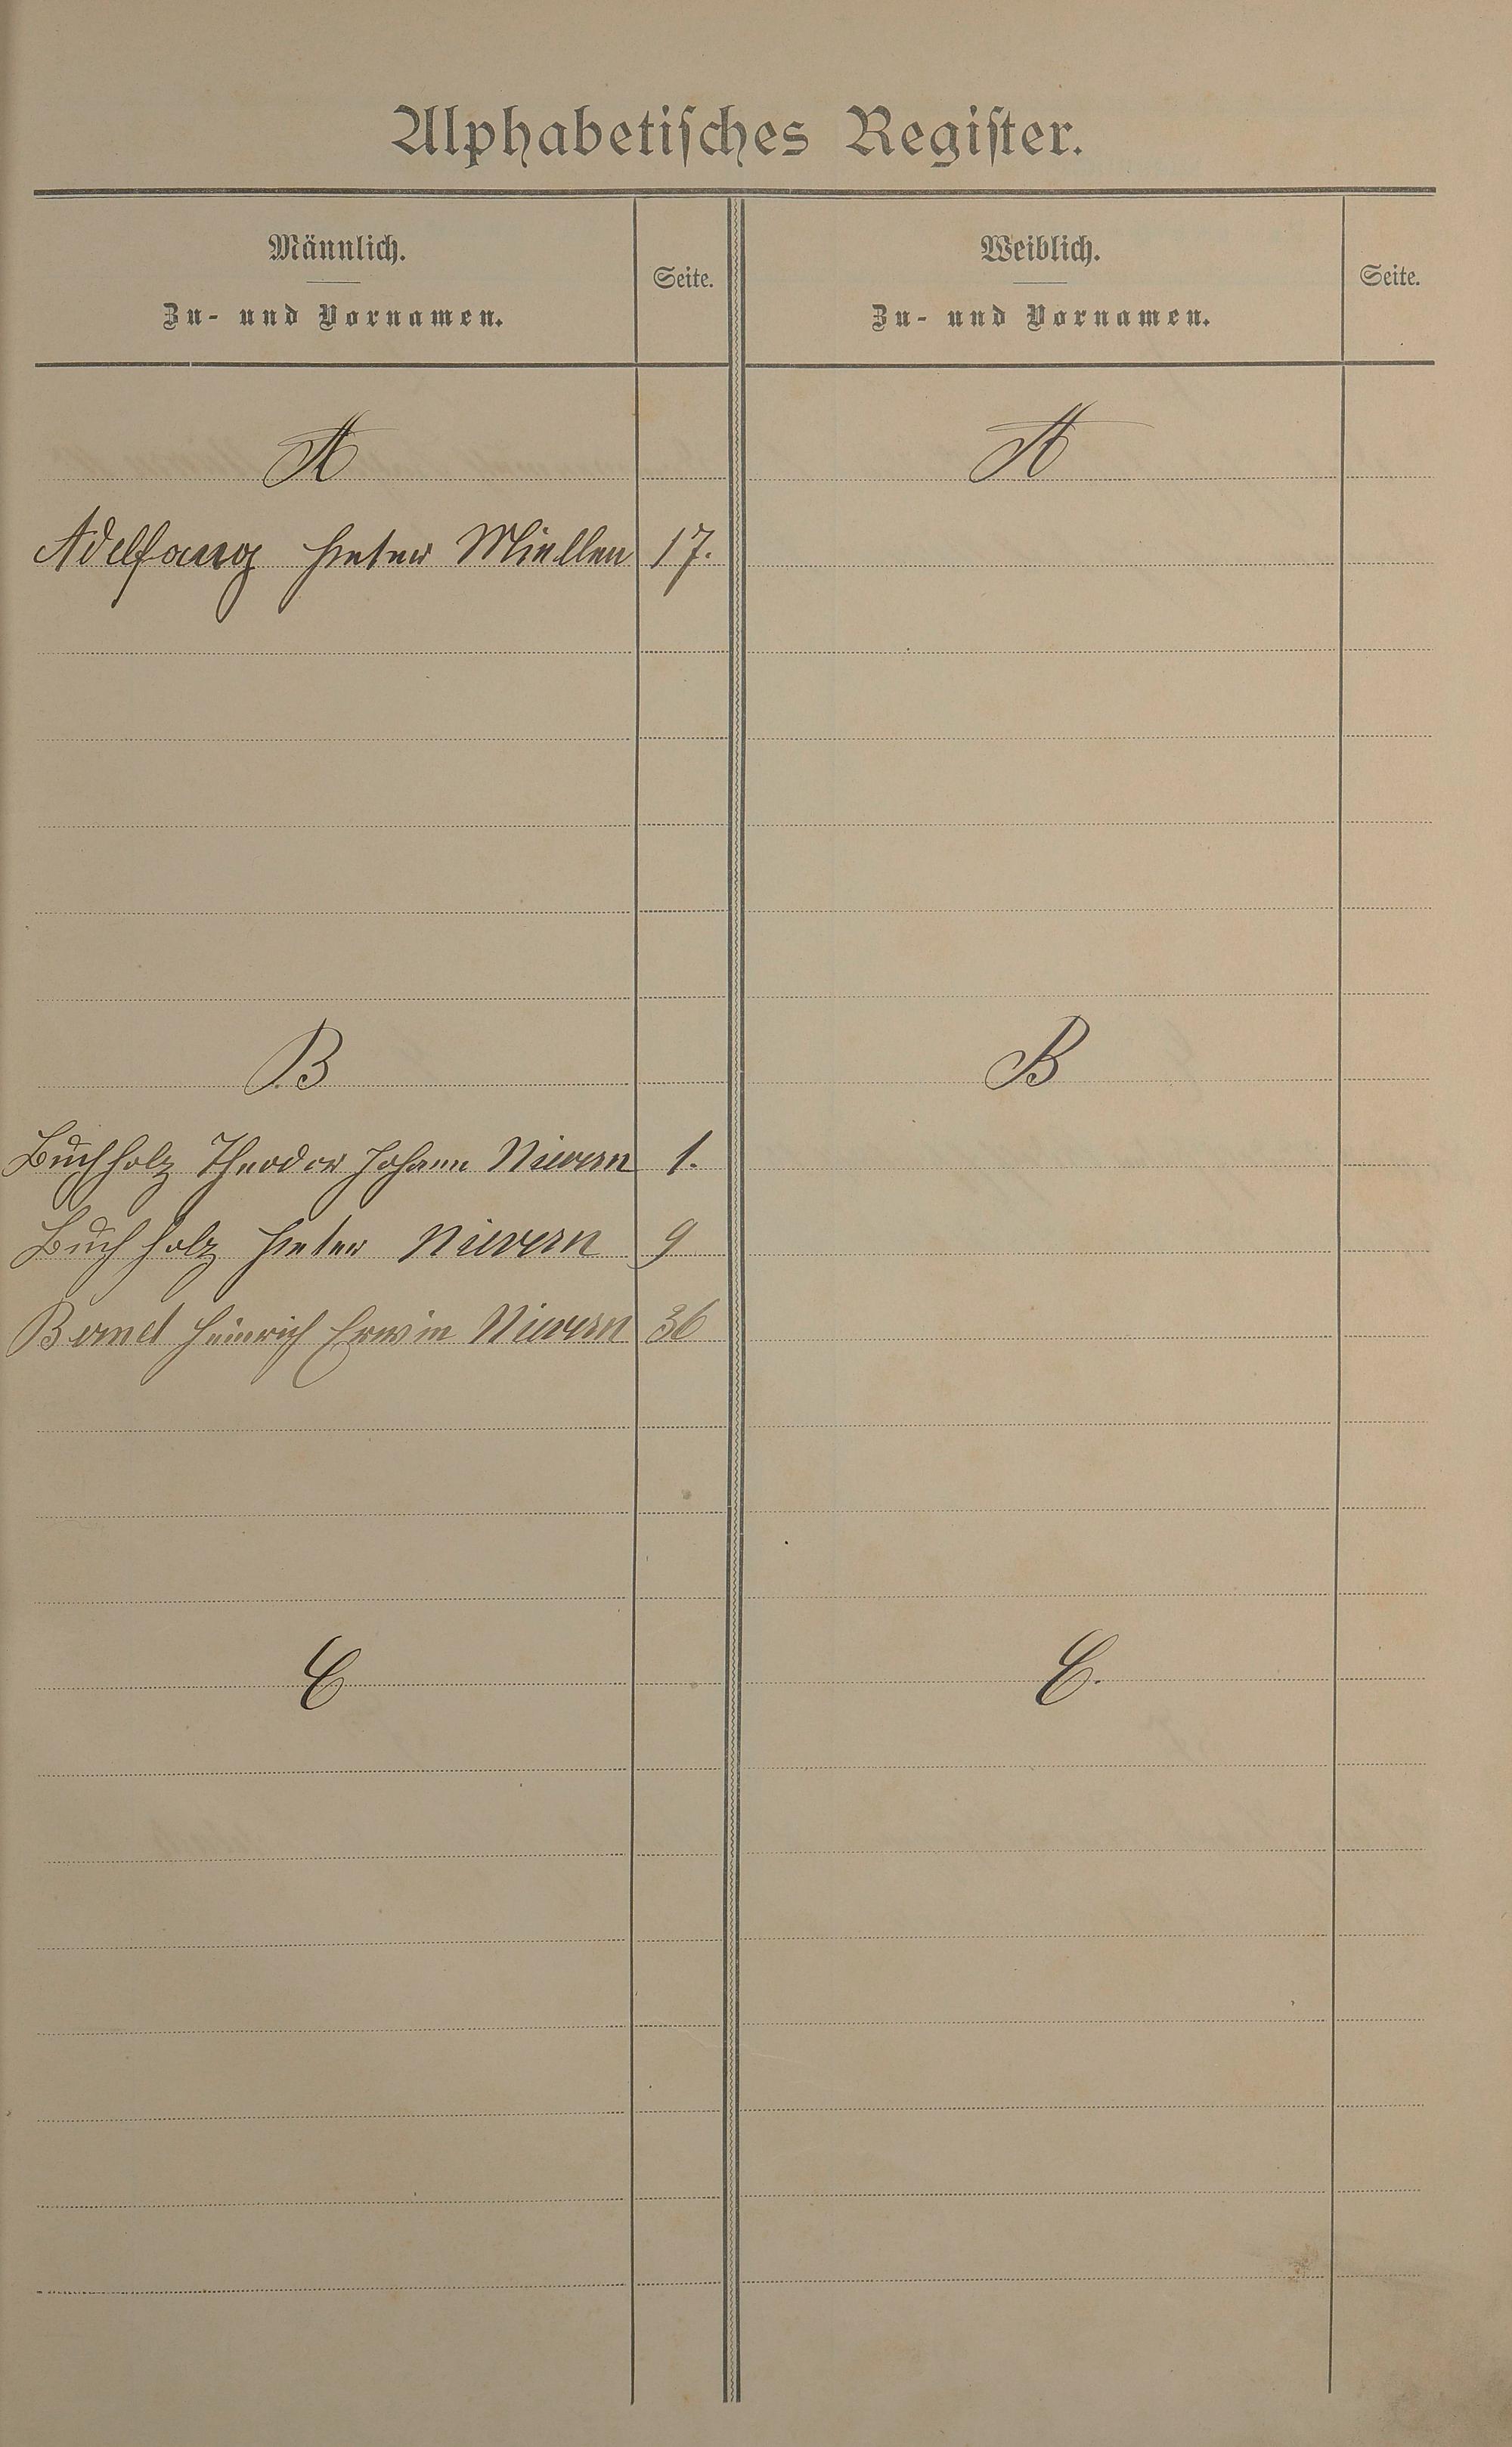 Alphabetisches Register.
Männlich.
Zu- und Vornamen.
Seite.
Weiblich.
Zu- und Vornamen.
Seite.
A
A
Adelfang Peter Miellen 17.
B
B
Buchholz Theodor Johann Nievern 1.
Buchholz Peter Nievern 9
Heinrich Erwin Nievern 36
C
C.